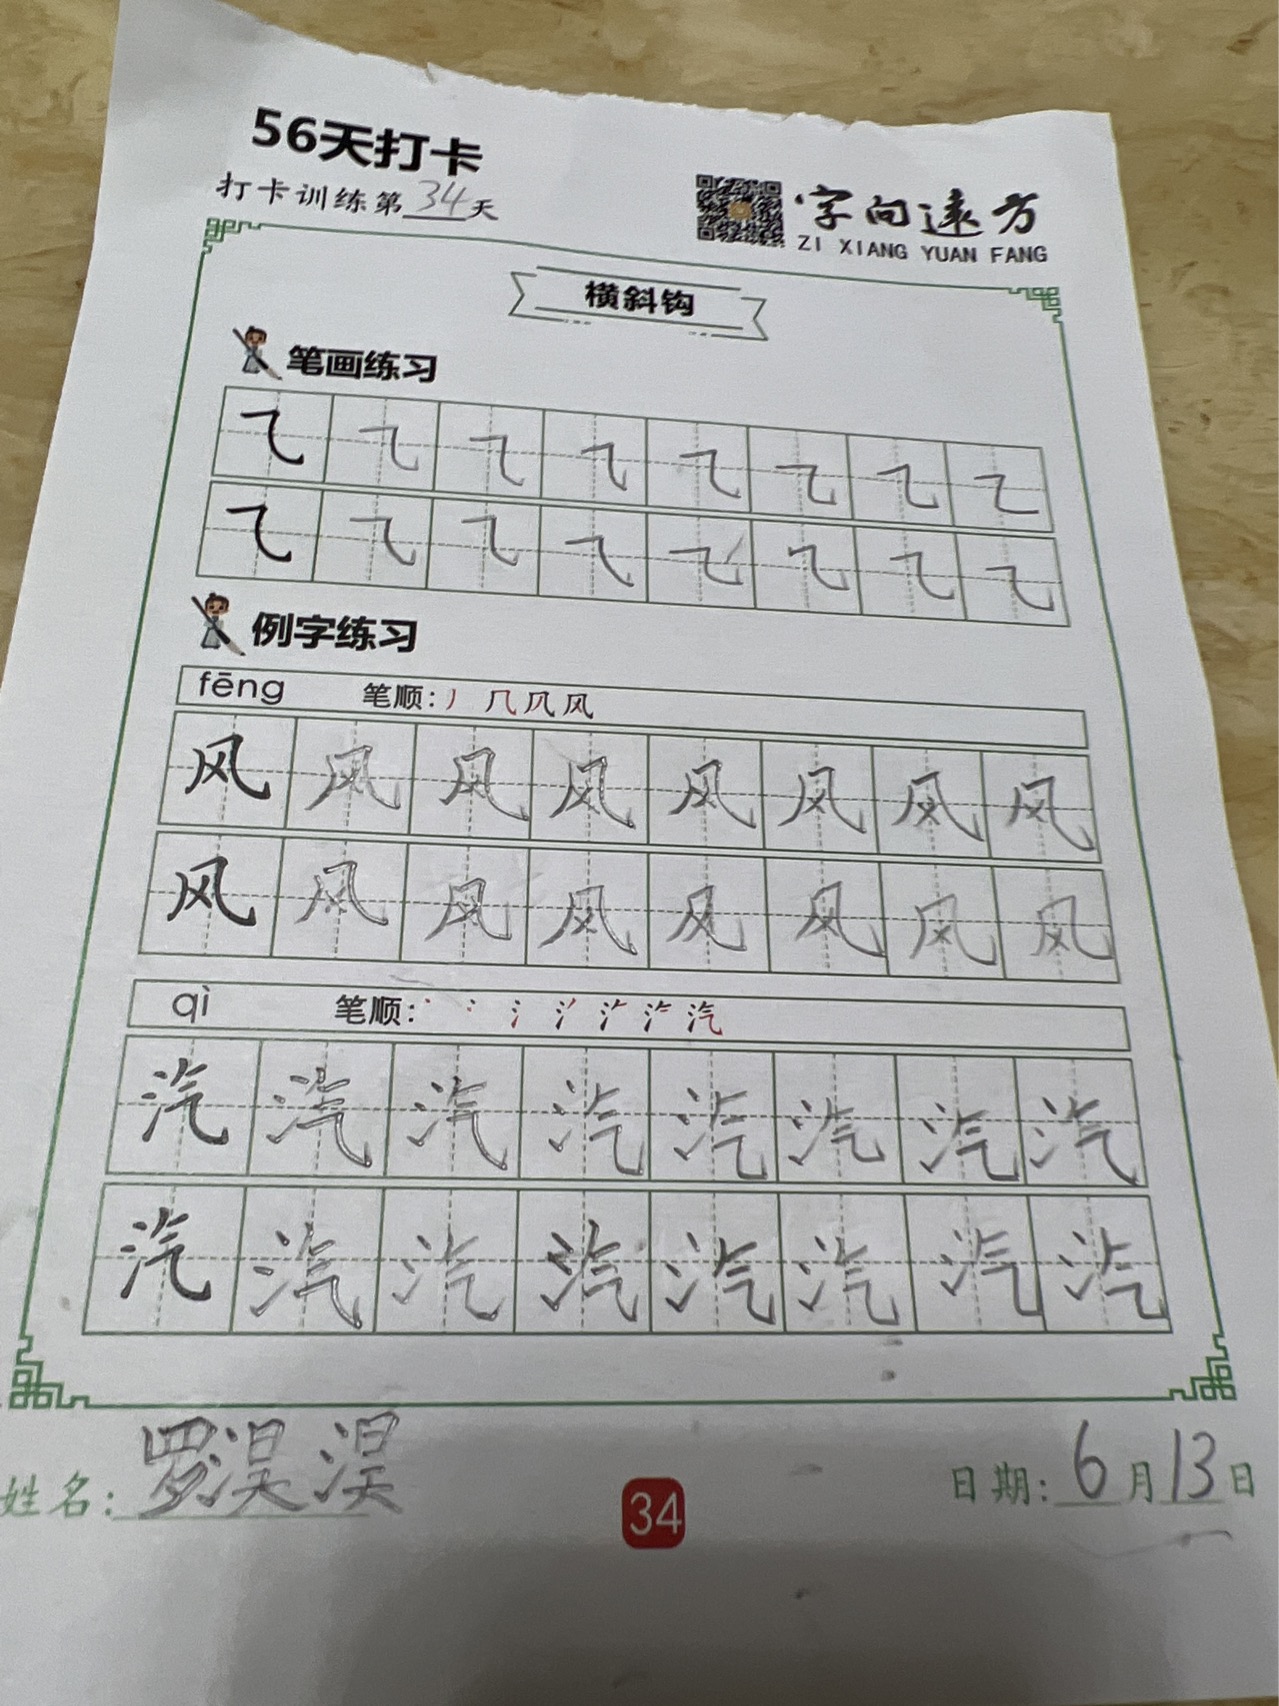 56天打卡
打卡训练第34天
字向远方
ZI XIANG YUAN FANG
横斜钩
笔画练习
乁 乁 乁 乁 乁 乁 乁 乁
乁 乁 乁 乁 乁 乁 乁 乁
例字练习
fēng 笔顺: 丿 几 凡 风
风 风 风 风 风 风 风 风
风 风 风 风 风 风 风 风
qì 笔顺: 汽
汽 汽 汽 汽 汽 汽 汽 汽
汽 汽 汽 汽 汽 汽 汽 汽
姓名: 罗淏淏
34
日期: 6月13日